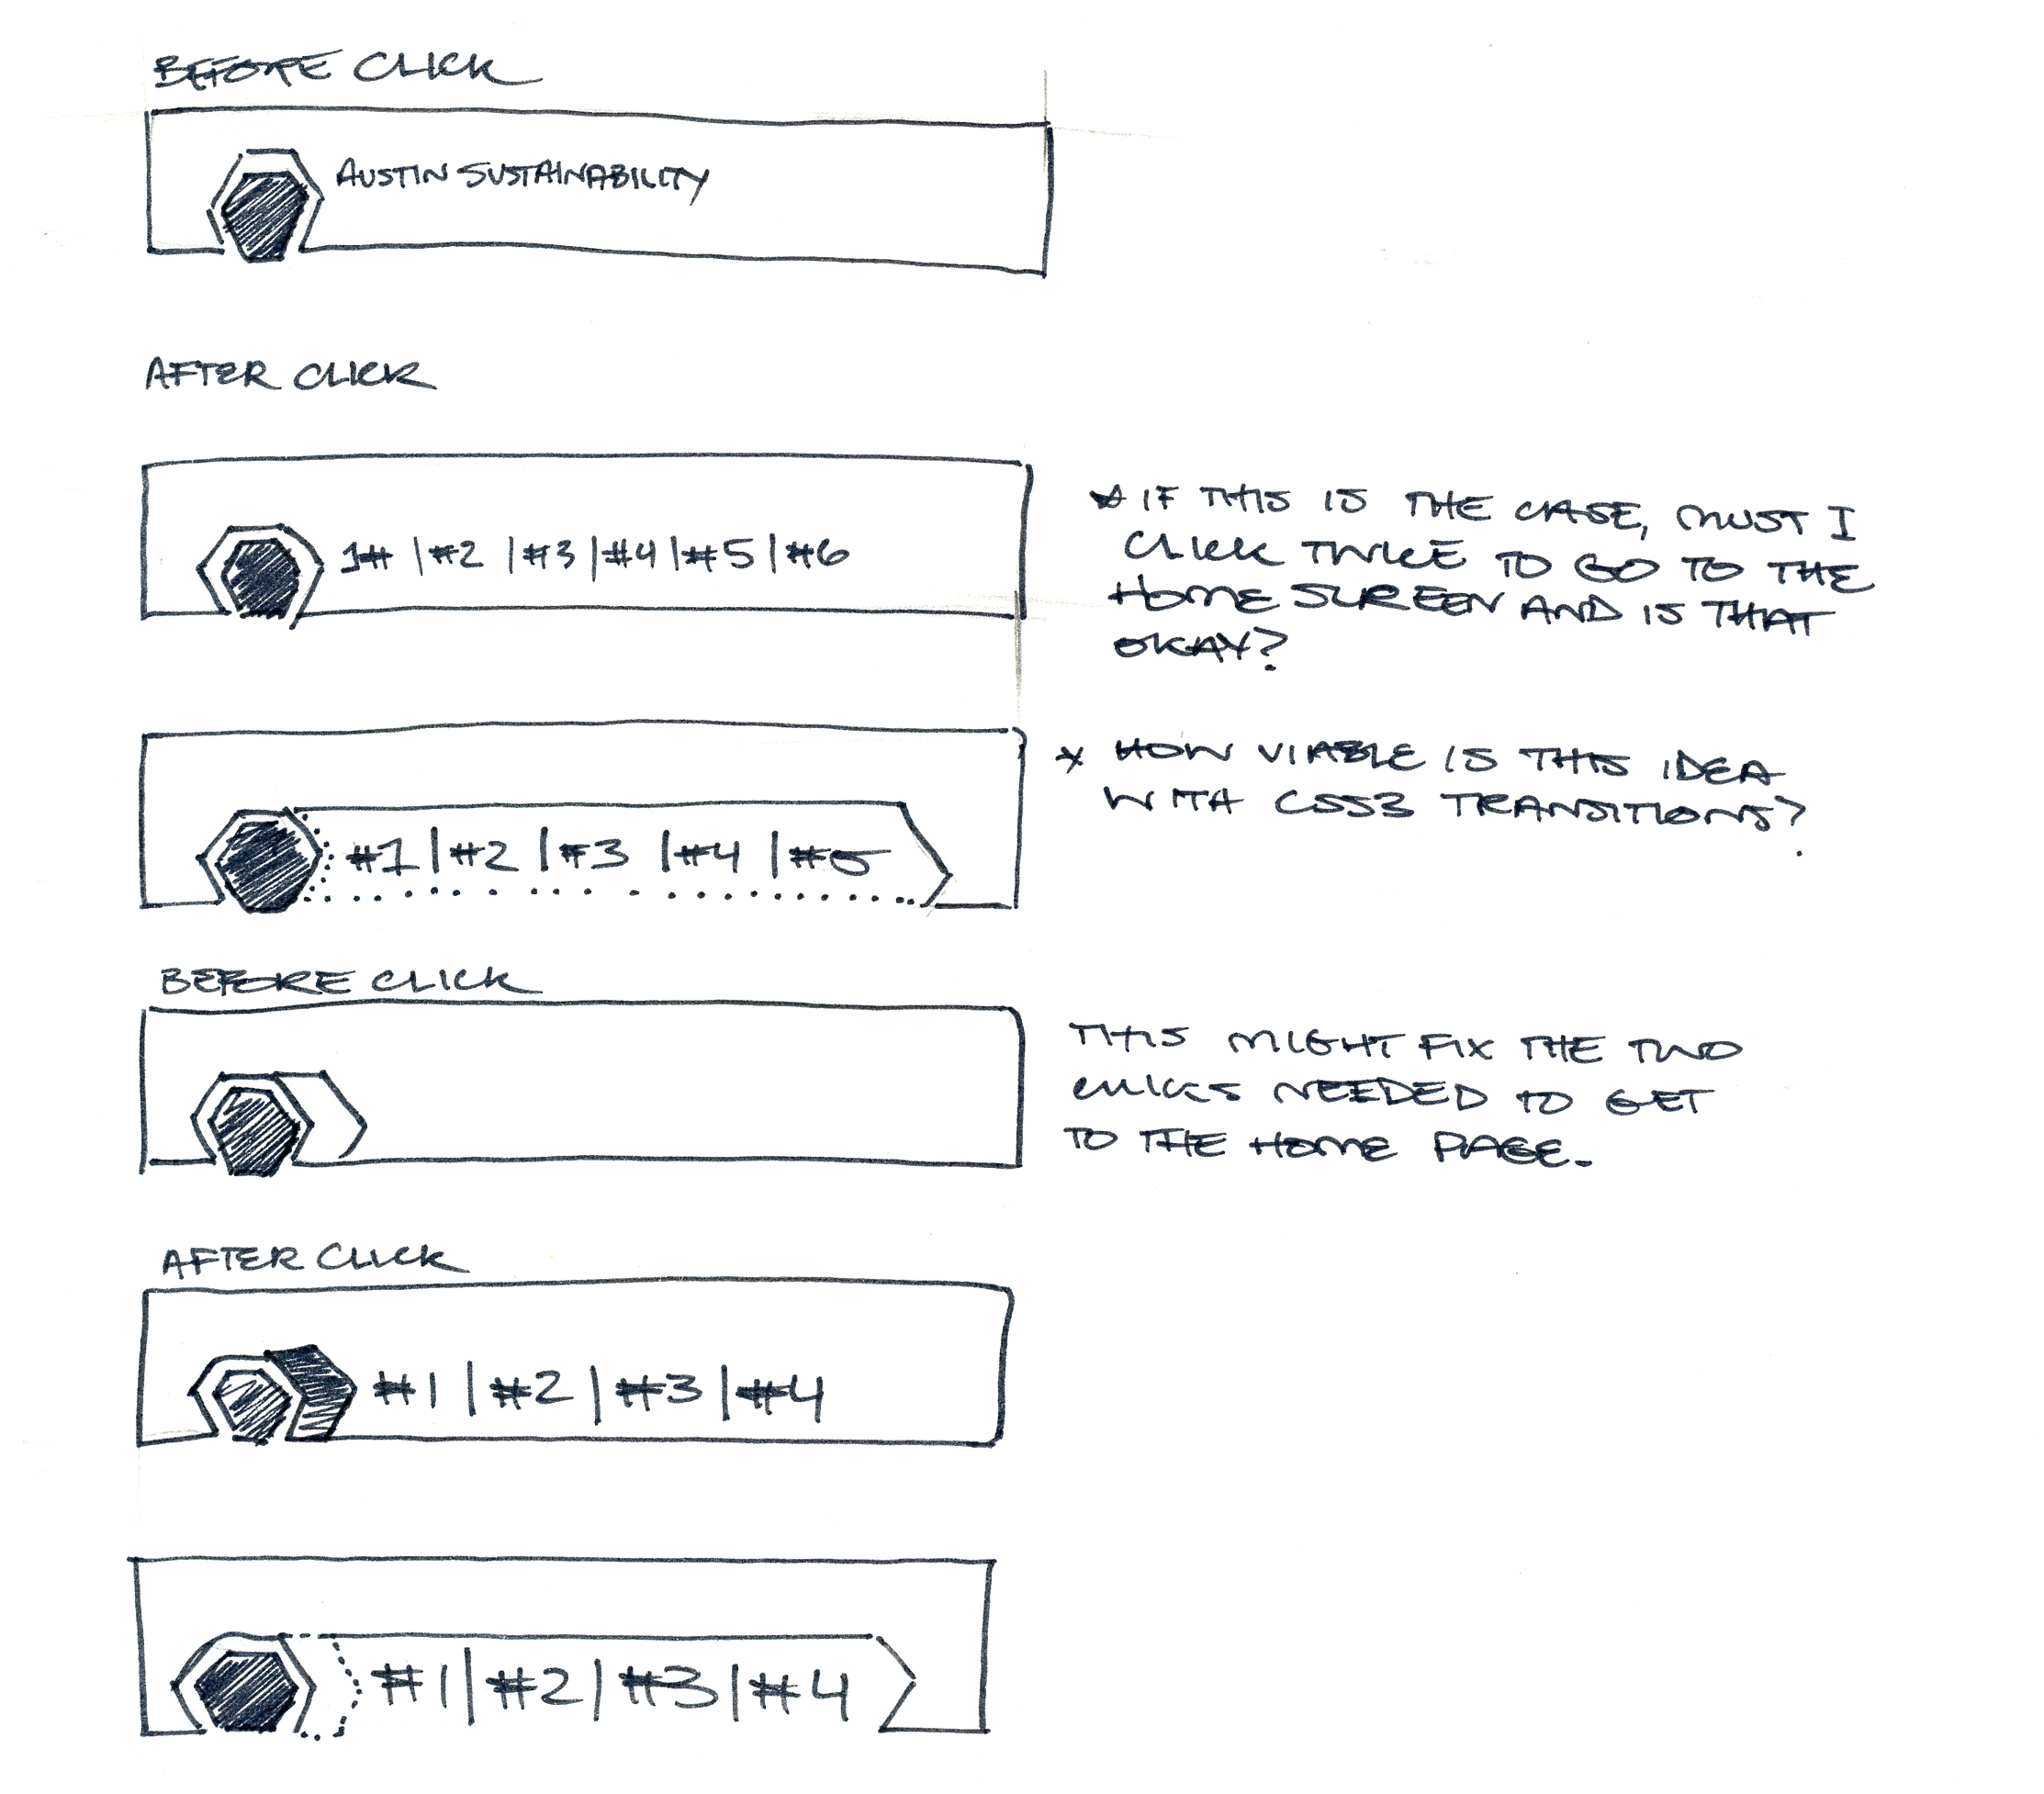 BEFORE CLICK
AUSTIN SUSTAINABILITY
AFTER CLICK
1# | #2 | #3 | #4 | #5 | #6
* IF THIS IS THE CASE, MUST I
CLICK TWICE TO GO TO THE
HOME SCREEN AND IS THAT
OKAY?
#1 | #2 | #3 | #4 | #5
* HOW VIABLE IS THIS IDEA
WITH CSS3 TRANSITIONS?
BEFORE CLICK
THIS MIGHT FIX THE TWO
CLICKS NEEDED TO GET
TO THE HOME PAGE.
AFTER CLICK
#1 | #2 | #3 | #4
#1 | #2 | #3 | #4